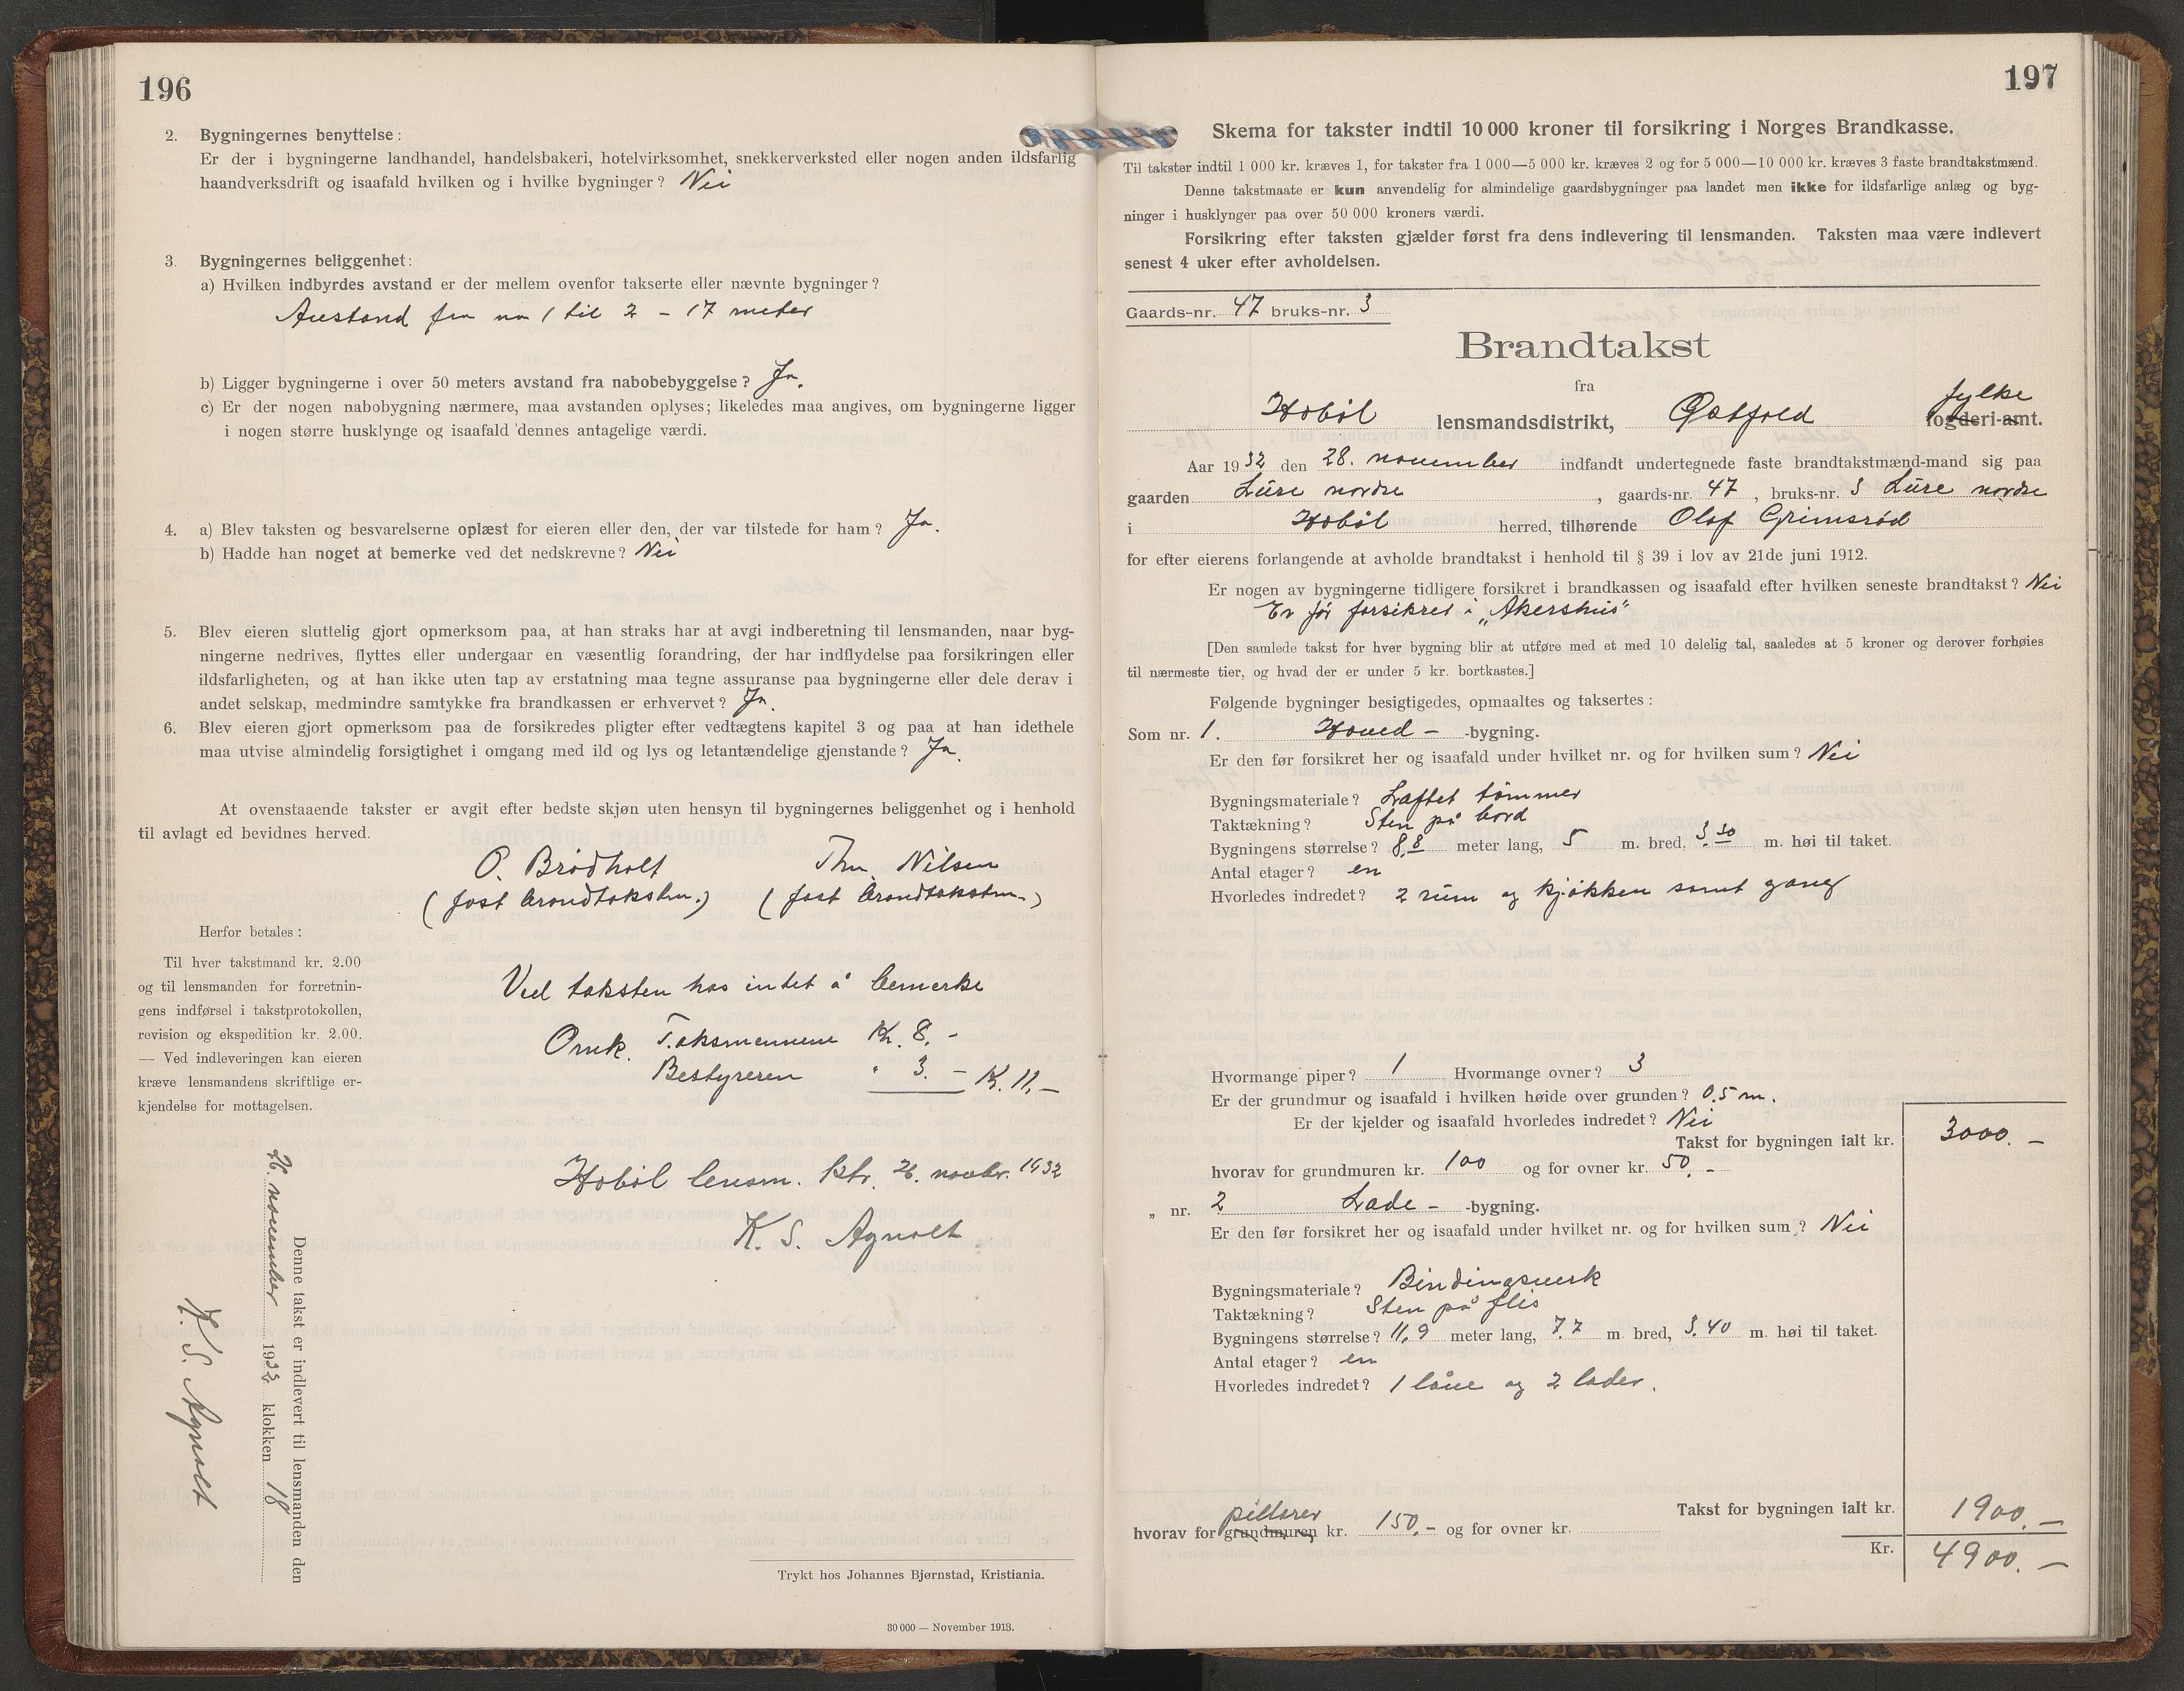 196
2. Bygningernes benyttelse:
Er der i bygningerne landhandel, handelsbakeri, hotelvirksomhet, snekkerverksted eller nogen anden ildsfarlig
haandverksdrift og isaafald hvilken og i hvilke bygninger? Nei
3. Bygningernes beliggenhet:
a) Hvilken indbyrdes avstand er der mellem ovenfor takserte eller nævnte bygninger?
Avstand fra no 1 til 2 - 17 meter
b) Ligger bygningerne i over 50 meters avstand fra nabobebyggelse? Ja.
c) Er der nogen nabobygning nærmere, maa avstanden oplyses; likeledes maa angives, om bygningerne ligger
i nogen større husklynge og isaafald dennes antagelige værdi.
4. a) Blev taksten og besvarelserne oplæst for eieren eller den, der var tilstede for ham? Ja.
b) Hadde han noget at bemerke ved det nedskrevne? Nei
5. Blev eieren sluttelig gjort opmerksom paa, at han straks har at avgi indberetning til lensmanden, naar byg-
ningerne nedrives, flyttes eller undergaar en væsentlig forandring, der har indflydelse paa forsikringen eller
ildsfarligheten, og at han ikke uten tap av erstatning maa tegne assuranse paa bygningerne eller dele derav i
andet selskap, medmindre samtykke fra brandkassen er erhvervet? Ja.
6. Blev eieren gjort opmerksom paa de forsikredes pligter efter vedtægtens kapitel 3 og paa at han idethele
maa utvise almindelig forsigtighet i omgang med ild og lys og letantændelige gjenstande? Ja.
At ovenstaaende takster er avgit efter bedste skjøn uten hensyn til bygningernes beliggenhet og i henhold
til avlagt ed bevidnes herved.
O. Brødholt Thv. Nilsen
(fast brandtakstm.) (fast brandtakstm.)
Herfor betales:
Til hver takstmand kr. 2.00
og til lensmanden for forretnin-
gens indførsel i takstprotokollen,
revision og ekspedition kr. 2.00.
— Ved indleveringen kan eieren
kræve lensmandens skriftlige er-
kjendelse for mottagelsen.
Ved taksten has intet å bemerke
Omk. Taksmennene Kr. 8. -
Bestyreren " 3. - K. 11, -
Hobøl lensm. ktr. 26. novbr. 1932
K. S. Agnalt
Denne takst er indlevert til lensmanden den
26. november 1932 klokken 18
K. S. Agnalt
Trykt hos Johannes Bjørnstad, Kristiania.
30 000 — November 1913.
197
Skema for takster indtil 10 000 kroner til forsikring i Norges Brandkasse.
Til takster indtil 1 000 kr. kræves 1, for takster fra 1 000—5 000 kr. kræves 2 og for 5 000—10 000 kr. kræves 3 faste brandtakstmænd.
Denne takstmaate er kun anvendelig for almindelige gaardsbygninger paa landet men ikke for ildsfarlige anlæg og byg-
ninger i husklynger paa over 50 000 kroners værdi.
Forsikring efter taksten gjælder først fra dens indlevering til lensmanden. Taksten maa være indlevert
senest 4 uker efter avholdelsen.
Gaards-nr. 47 bruks-nr. 3
Brandtakst
fra
fylke
Hobøl lensmandsdistrikt, Østfold fogderi-amt.
Aar 1932 den 28. november indfandt undertegnede faste brandtakstmænd-mand sig paa
gaarden Lure nordre, gaards-nr. 47, bruks-nr. 3 Lure nordre
i Hobøl herred, tilhørende Olaf Grimsrød
for efter eierens forlangende at avholde brandtakst i henhold til § 39 i lov av 21de juni 1912.
Er nogen av bygningerne tidligere forsikret i brandkassen og isaafald efter hvilken seneste brandtakst? Nei
Er før forsikret i „Akershus"
[Den samlede takst for hver bygning blir at utføre med et med 10 delelig tal, saaledes at 5 kroner og derover forhøies
til nærmeste tier, og hvad der er under 5 kr. bortkastes.]
Følgende bygninger besigtigedes, opmaaltes og taksertes:
Som nr. 1. Hoved - -bygning.
Er den før forsikret her og isaafald under hvilket nr. og for hvilken sum? Nei
Bygningsmateriale? Laftet tømmer
Taktækning? Sten på bord
Bygningens størrelse? 8,8 meter lang, 5 m. bred, 3.30 m. høi til taket.
Antal etager? en
Hvorledes indredet? 2 rum og kjøkken samt gang
Hvormange piper? 1 Hvormange ovner? 3
Er der grundmur og isaafald i hvilken høide over grunden? 0,5 m.
Er der kjelder og isaafald hvorledes indredet? Nei
Takst for bygningen ialt kr. 3000. -
hvorav for grundmuren kr. 100 og for ovner kr. 50. -
„ nr. 2 Lade - -bygning.
Er den før forsikret her og isaafald under hvilket nr. og for hvilken sum? Nei
Bygningsmateriale? Bindingsverk
Taktækning? Sten på flis
Bygningens størrelse? 11,9 meter lang, 7,7 m. bred, 3,40 m. høi til taket.
Antal etager? en
Hvorledes indredet? 1 låve og 2 lader.
Takst for bygningen ialt kr. 1900. -
pillarer
hvorav for grundmuren kr. 150,- og for ovner kr.
Kr. 4900. -